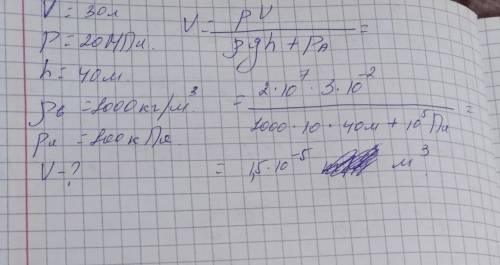 V = 30л
P = 20МПа.
h = 40м.
ρв = 1000кг/м³
pа = 100кПа
V - ?
V = pV / (ρgh + pа) =
= 2·10⁷·3·10⁻² / (1000·10·40м + 10⁵Па) =
= 1,5·10⁻⁵ м³